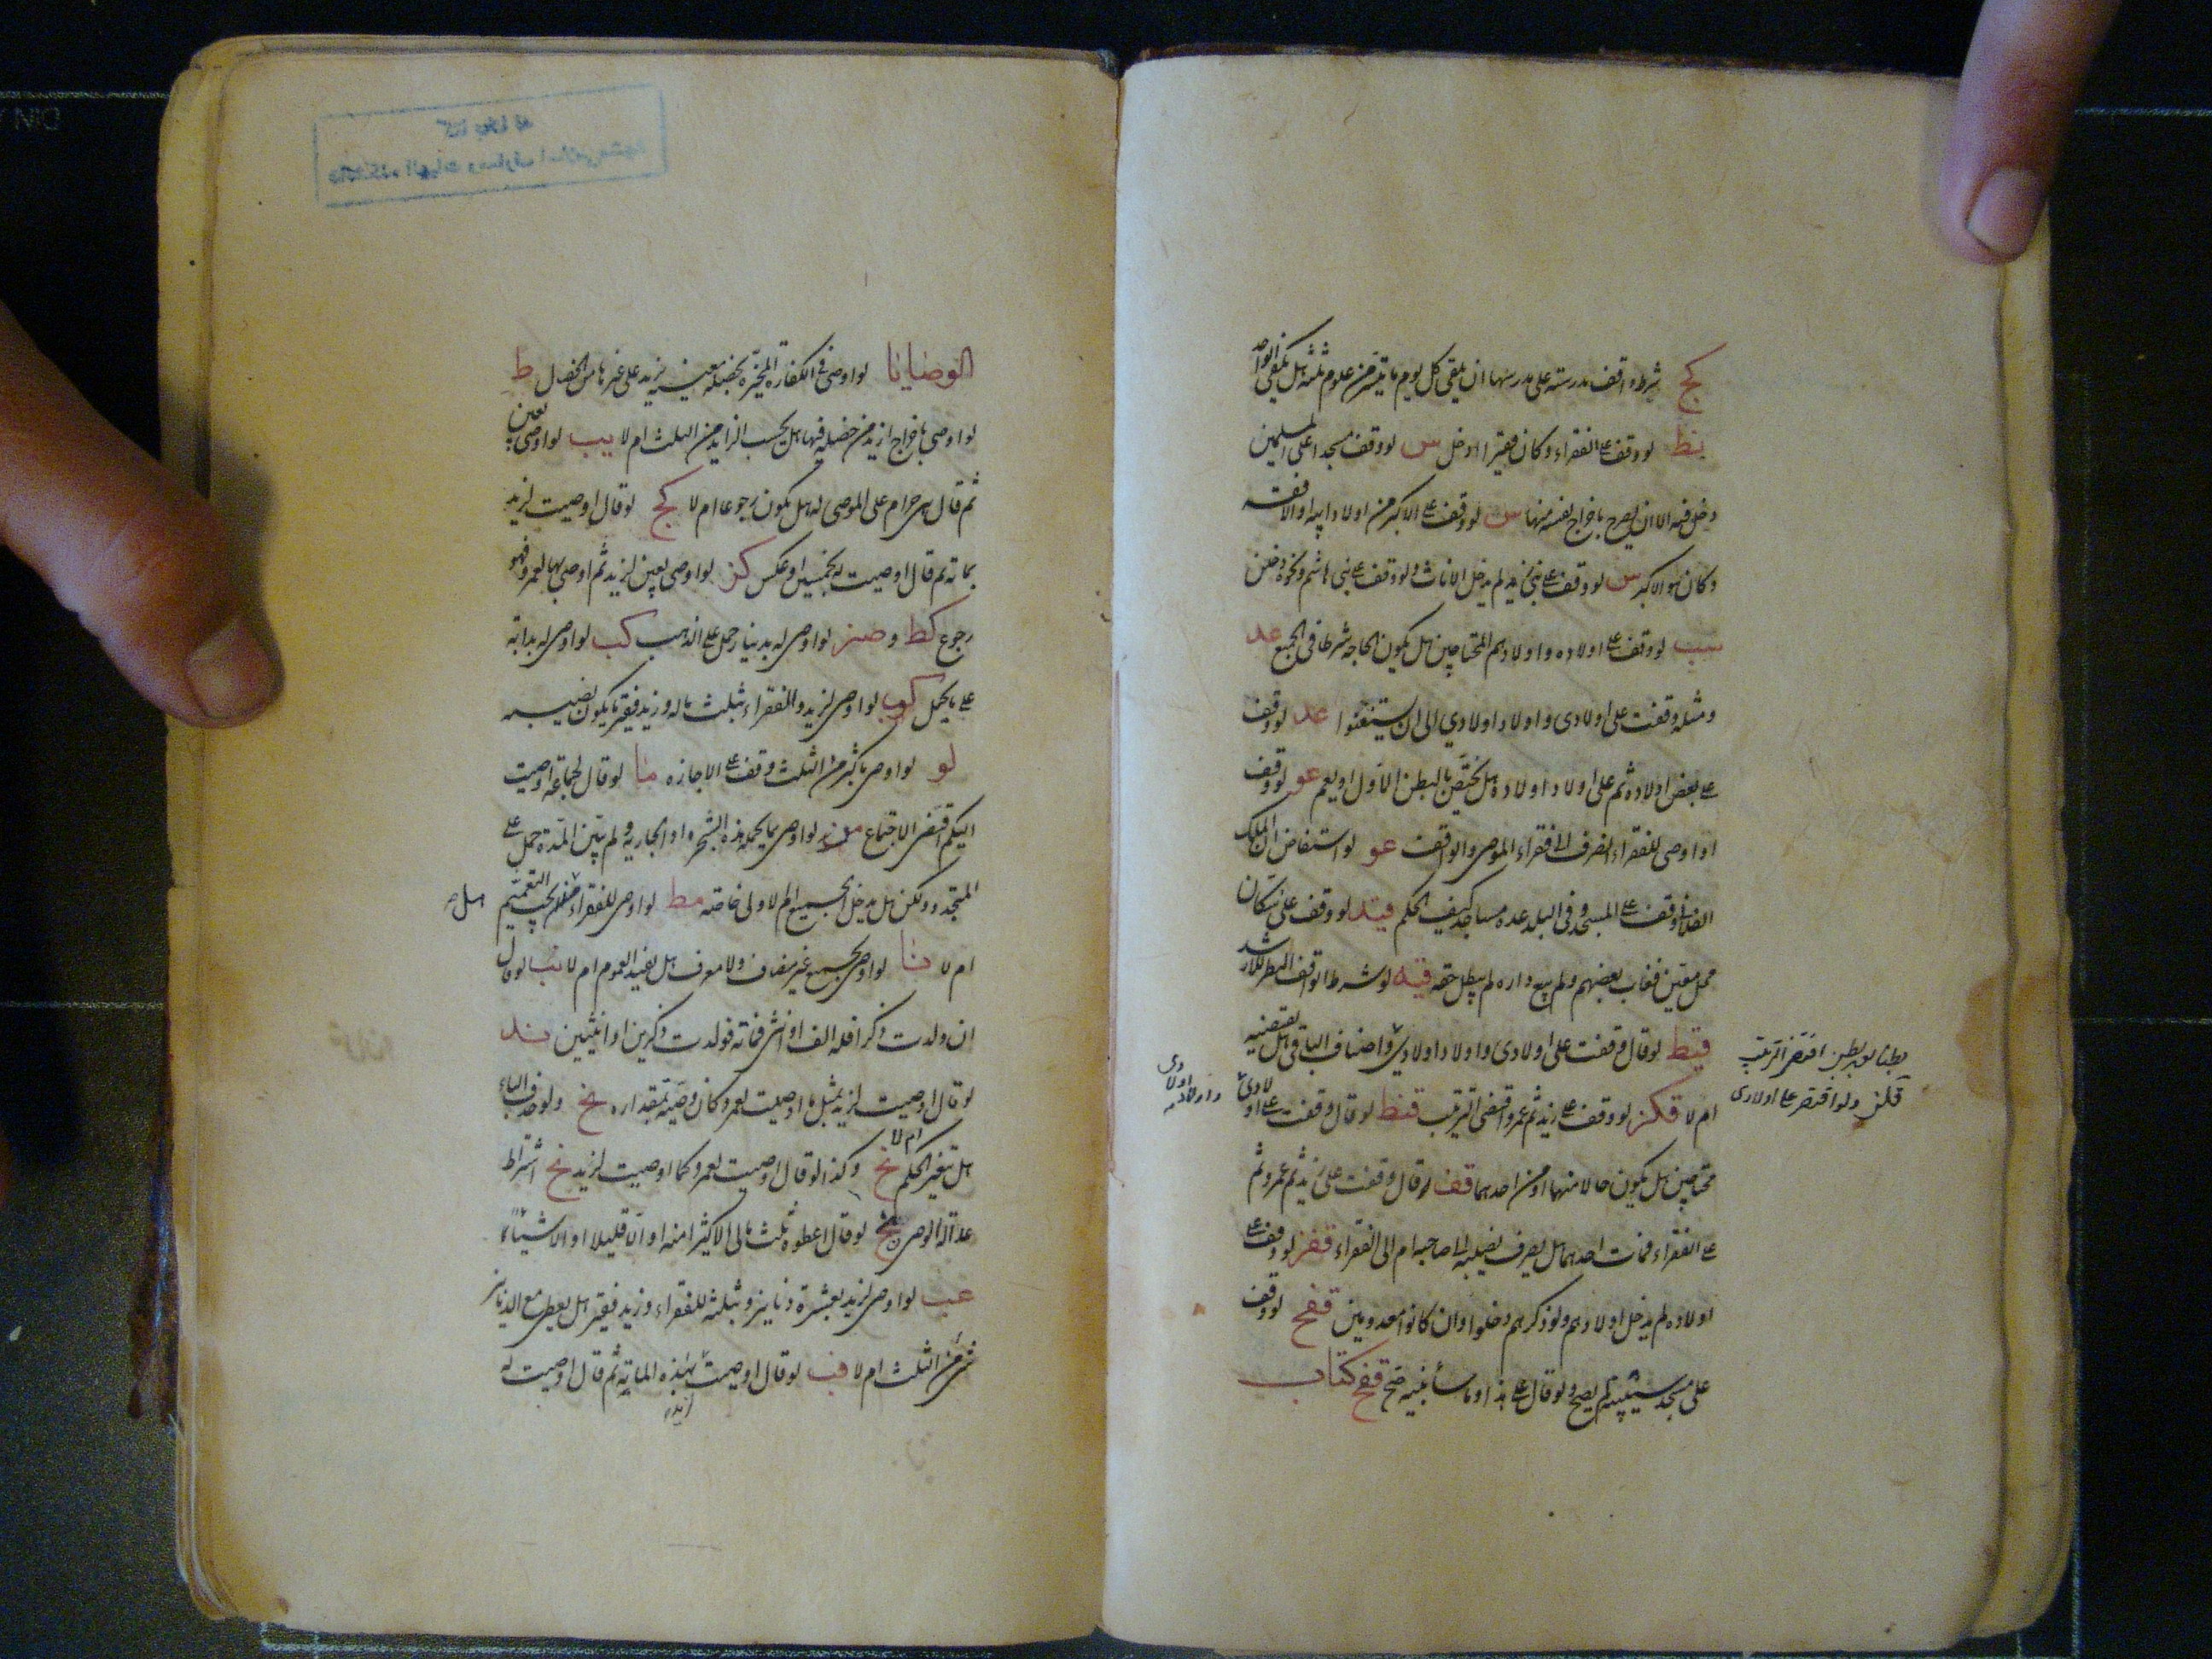 كج شرط واقف مدرسته على مدرسها ان يلقى كل يوم ما تيسر من علوم ثلثه هل يكفى الواحد
نط لو وقف على الفقراء وكان فقيرا ادخل س لو وقف مسجدا على المسلمين
دخل فيه الا ان يصرح باخراج نفسه منها س لو وقف على الاكبر من اولاد ابيه او الافقه
وكان هو الاكبر س لو وقف على بنى زيد لم يدخل الاناث ولو وقف على بنى هاشم ونحوه دخلن
سب لو وقف على اولاده واولادهم المحتاجين هل يكون الحاجه شرطا فى الجميع عد
ومثله وقفت على اولادى واولاد اولادي الى ان يستغنوا عد لو وقف
على بعض اولاده ثم على اولاد اولاده هل يختص بالبطن الاول او يعم عو لو وقف
او اوصى للفقراء انصرف الى فقراء الموصى والواقف عو لو استفاض ان الملك
الفلانى وقف على المسجد وفى البلد عده مساجد كيف الحكم قيد لو وقف على سكان
محل معين فغاب بعضهم ولم يبع داره لم يبطل حقه قيه لو شرط الواقف النظر للارشد
قيط لو قال وقفت على اولادى واولاد اولادى واصناف الباقى هل يقتضيه
ام لا قكز لو وقف على زيد ثم عمرو اقتضى الترتيب قنط لو قال وقفت على اولادى
محتاجين هل يكون حالا منهما او من احدهما قف لو قال وقفت على زيد ثم عمرو ثم
على الفقراء فمات احدهما هل يصرف نصيبه الى صاحبه ام الى الفقراء قفز لو وقف على
اولاده لم يدخل اولادهم ولو ذكرهم دخلوا وان كانوا معدومين قفح لو وقف
على مسجد سيبنى لم يصح ولو قال على هذا وما سأبنيه صح قفح كتاب
بطنا بعد بطن اقتضى الترتيب
قكز ولو اقتصر على اولادى
واولاد اولادى
الوصايا نا لو اوصى فى الكفارة المخيره بخصله معينه يزيد على غيرها من الخصال ط
لو اوصى باخراج ازيد من خصله فيها هل يحسب الزايد من الثلث ام لا يب لو اوصى بعين
ثم قال هى حرام على الموصى له هل يكون رجوعا ام لا كج لو قال اوصيت لزيد
بمائه ثم قال اوصيت له بخمسين او عكس كز لو اوصى بعين لزيد ثم اوصى بها لعمرو فهو
رجوع كط وصز لو اوصى له بدينار حمل على الذهب كب لو اوصى له بدابة
على ما يحمل كوب لو اوصى لزيد والفقراء بثلث ماله وزيد فقير ما يكون نصيبه
لو لو اوصى باكثر من الثلث وقف على الاجازه ما لو قال لجماعة اوصيت
اليكم اقتضى الاجتماع مز لو اوصى بما يحمله هذه الشجره او الجاريه ولم يبين المدة حمل على
المتجدد ولكن هل يدخل الجميع ام الاولى خاصة مط لو اوصى للفقراء هل يجب التعميم
ام لا نا لو اوصى لجميع غير مضاف ولا معرف هل يفيد العموم ام لا نب لو قال
ان ولدت ذكرا فله الف او انثى فمائه فولدت ذكرين او انثيين ند
لو قال اوصيت لزيد بمثل ما اوصيت لعمرو وكان وصيته بمقداره نح ولو حذف الباء
هل يتغير الحكم ام لا نح وكذا لو قال اوصيت لعمرو كما اوصيت لزيد نح اشتراط
عدالة الوصى نح لو قال اعطوه ثلث مالى الا كثيرا منه او الا قليلا او الا شيئا
عب لو اوصى لزيد بعشرة دنانير وبثلثه للفقراء وزيد فقير هل يعطى مع الدنانير
شئ من الثلث ام لا فب لو قال اوصيت لزيد بهذه المائة ثم قال اوصيت له